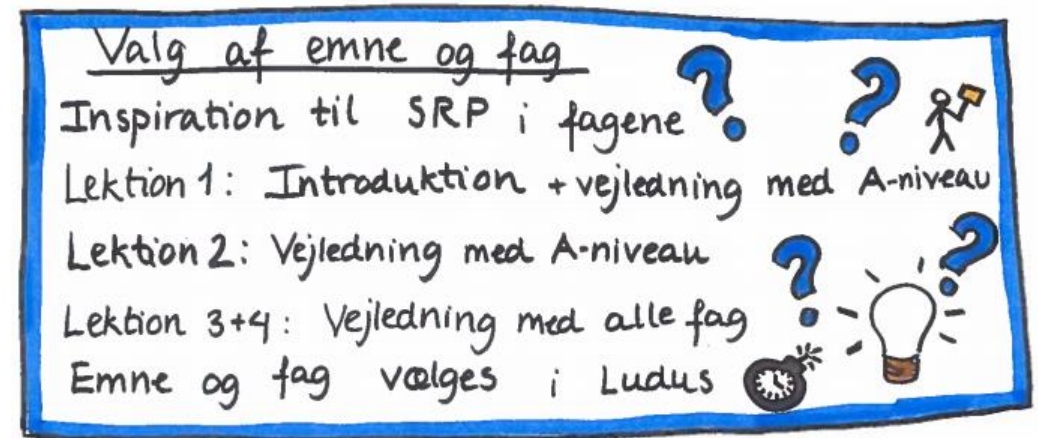 Valg af emne og fag
Inspiration til SRP i fagene
Lektion 1: Introduktion + vejledning med A-niveau
Lektion 2: Vejledning med A-niveau
Lektion 3+4: Vejledning med alle fag
Emne og fag vælges i Ludus